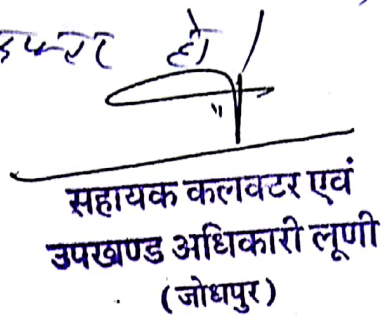 हो।
सहायक कलक्टर एवं
उपखण्ड अधिकारी लूणी
(जोधपुर)